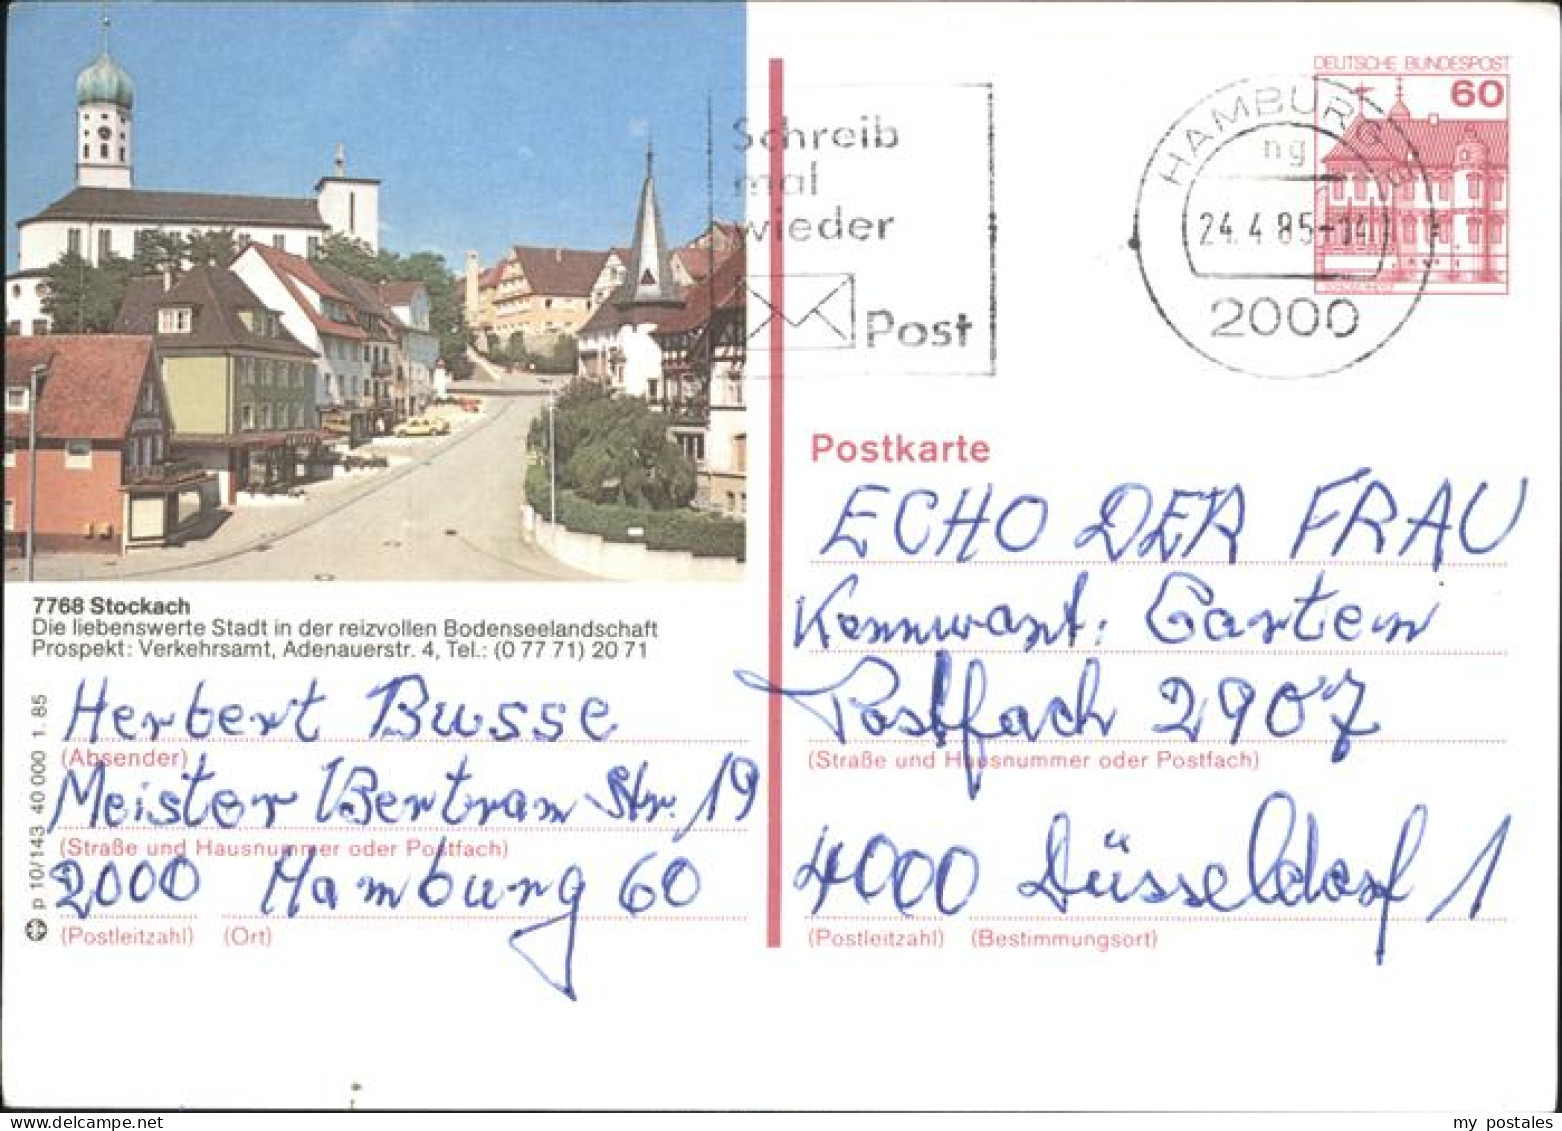 DEUTSCHE BUNDESPOST
60
HAMBURG
ng
24.4.85-14
2000
Schreib
mal
wieder
Post
Postkarte
ECHO DER FRAU
Kennwort: Garten
Postfach 2907
(Straße und Hausnummer oder Postfach)
4000 Düsseldorf 1
(Postleitzahl) (Bestimmungsort)
7768 Stockach
Die liebenswerte Stadt in der reizvollen Bodenseelandschaft
Prospekt: Verkehrsamt, Adenauerstr. 4, Tel.: (0 77 71) 20 71
Herbert Busse
(Absender)
Meister Bertram Str. 19
(Straße und Hausnummer oder Postfach)
2000 Hamburg 60
(Postleitzahl) (Ort)
p 10/143 40 000 1. 85
my postales